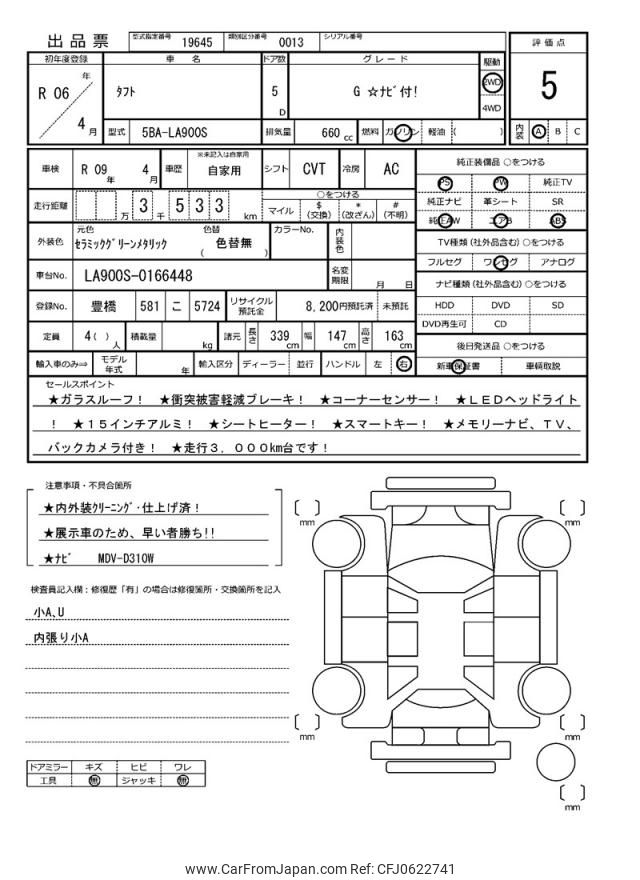 出品票 型式指定番号 19645 類別区分番号 0013 シリアル番号
初年度登録 車名 ドア数 グレード 駆動 評価点
R 06 年 4 月 タフト 5 D G ☆ナビ付! 2WD 4WD 5
型式 5BA-LA900S 排気量 660 cc 燃料 ガソリン 軽油 ( ) 内装 A B C
車検 R 09 年 4 月 車歴 ※未記入は自家用 自家用 シフト CVT 冷房 AC
純正装備品 ○をつける
PS PW 純正TV
純正ナビ 革シート SR
純正AW エアB ABS
走行距離 万 3 千 5 3 3 km
○をつける
マイル $(交換) *(改ざん) #(不明)
外装色 元色 セラミックグリーンメタリック 色替 ( 色替無 ) カラーNo. 内装色
TV種類 (社外品含む) ○をつける
フルセグ ワンセグ アナログ
車台No. LA900S-0166448 名変期限 月 日
ナビ種類 (社外品含む) ○をつける
HDD DVD SD
DVD再生可 CD
登録No. 豊橋 581 こ 5724 リサイクル預託金 8,200円預託済 未預託
定員 4( ) 人 積載量 kg 諸元 長さ 339 cm 幅 147 cm 高さ 163 cm
後日発送品 ○をつける
新車保証書 車輌取説
輸入車のみ⇒ モデル年式 年 輸入区分 ディーラー 並行 ハンドル 左 右
セールスポイント
★ガラスルーフ! ★衝突被害軽減ブレーキ! ★コーナーセンサー! ★LEDヘッドライト
! ★15インチアルミ! ★シートヒーター! ★スマートキー! ★メモリーナビ、TV、
バックカメラ付き! ★走行3,000km台です!
注意事項・不具合箇所
★内外装クリーニング・仕上げ済!
★展示車のため、早い者勝ち!!
★ナビ MDV-D310W
検査員記入欄:修復歴「有」の場合は修復箇所・交換箇所を記入
小A、U
内張り小A
ドアミラー キズ ヒビ ワレ
工具 無 ジャッキ 無
mm
mm
mm
mm
mm
www.CarFromJapan.com Ref: CFJ0622741